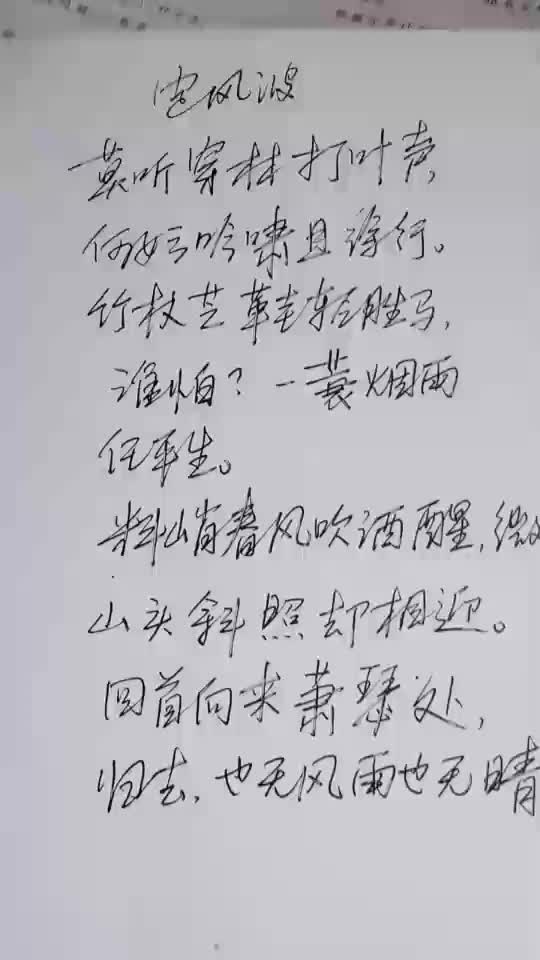 定风波
莫听穿林打叶声，
何妨吟啸且徐行。
竹杖芒鞋轻胜马，
谁怕？一蓑烟雨
任平生。
料峭春风吹酒醒，微
山头斜照却相迎。
回首向来萧瑟处，
归去，也无风雨也无晴